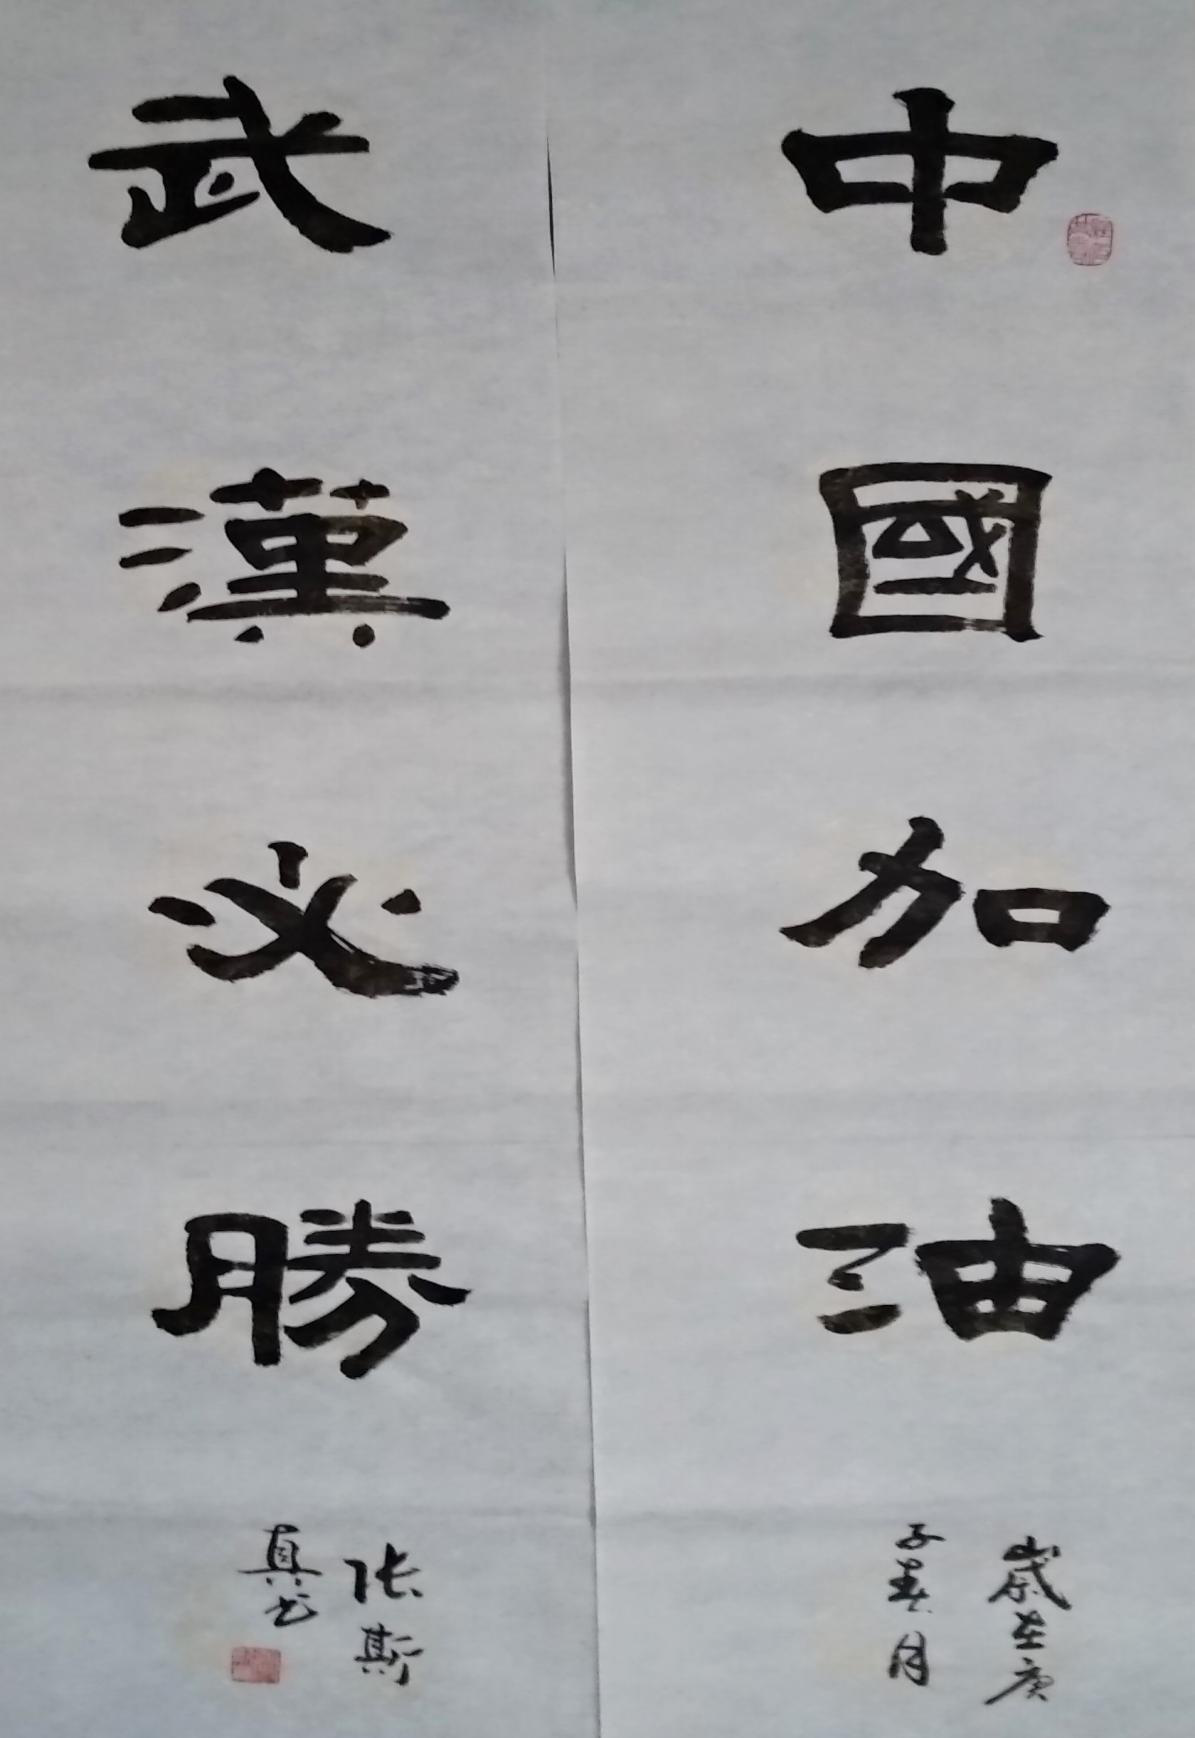 中國加油
歲在庚
子春月
武漢必勝
张斯
真书